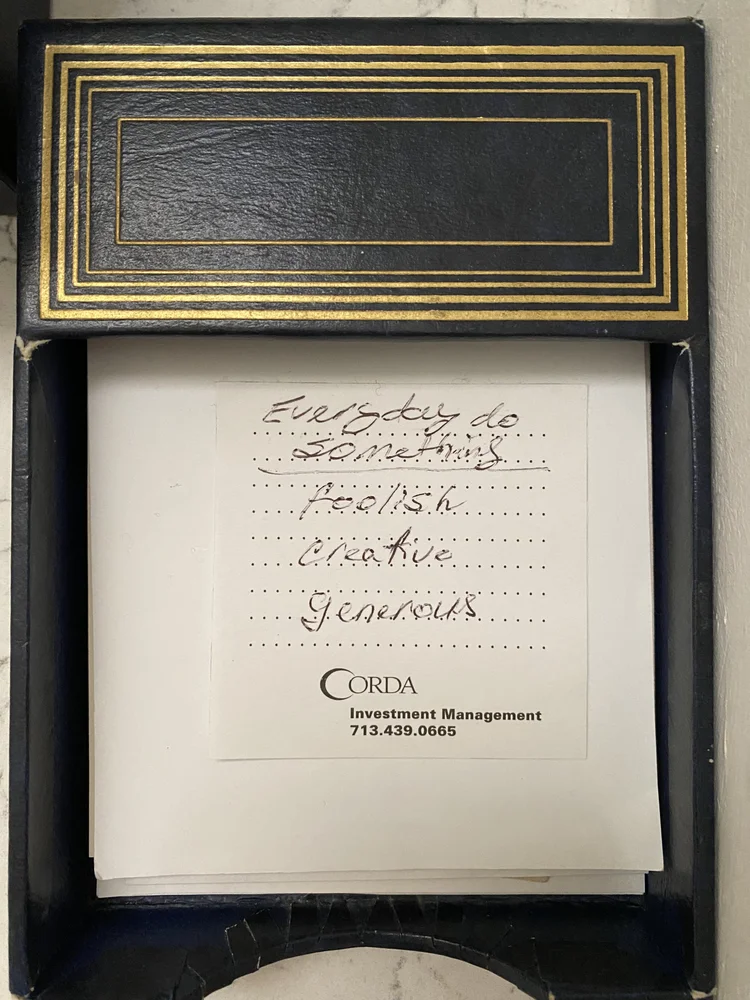 Everyday do
something
foolish
creative
generous
CORDA
Investment Management
713.439.0665